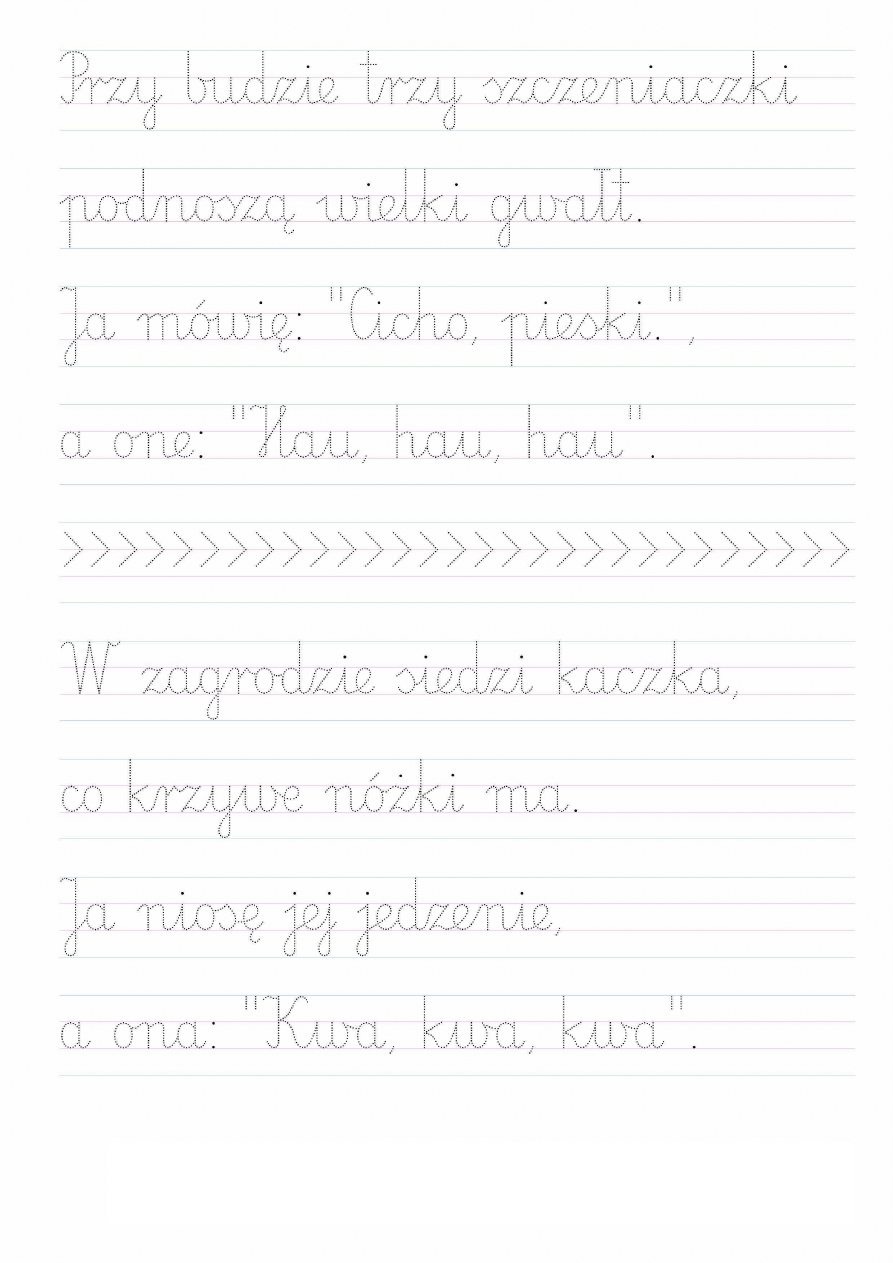 Przy budzie trzy szczeniaczki
podnoszą wielki gwałt.
Ja mówię: "Cicho, pieski.",
a one: "Hau, hau, hau".
>>>>>>>>>>>>>>>>>>>>>>>>>>>>>
W zagrodzie siedzi kaczka,
co krzywe nóżki ma.
Ja niosę jej jedzenie,
a ona: "Kwa, kwa, kwa".